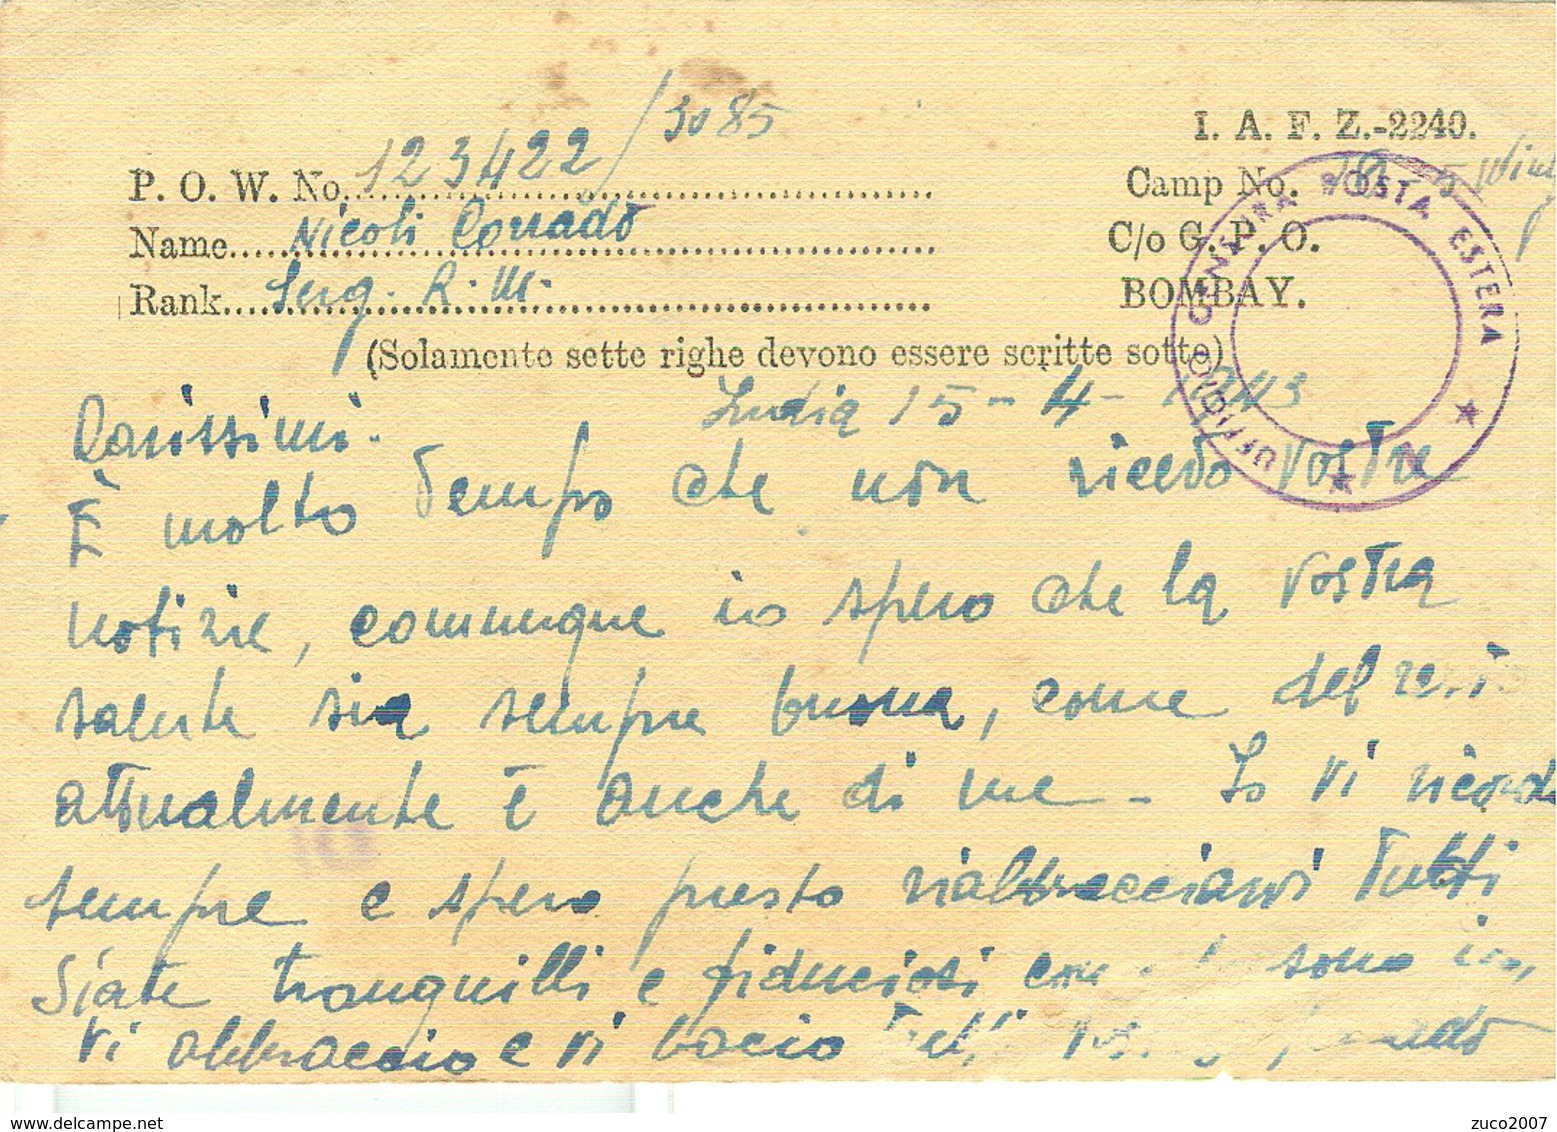 I. A. F. Z.-2240.
P. O. W. No. 123422/3085
Camp No. 5 Wing
Name Nicoli Corrado
C/o G. P. O.
Rank Serg. R. M.
BOMBAY.
(Solamente sette righe devono essere scritte sotte)
UFFICIO CENSURA POSTA ESTERA
India 15-4-1943
Carissimi.
È molto tempo che non ricevo vostre
notizie, comunque io spero che la vostra
salute sia sempre buona, come del resto
attualmente è anche di me - Io vi ricordo
sempre e spero presto riabbracciarvi tutti
Siate tranquilli e fiduciosi come lo sono io,
vi abbraccio e vi bacio tutti vostro Corrado
zuco2007